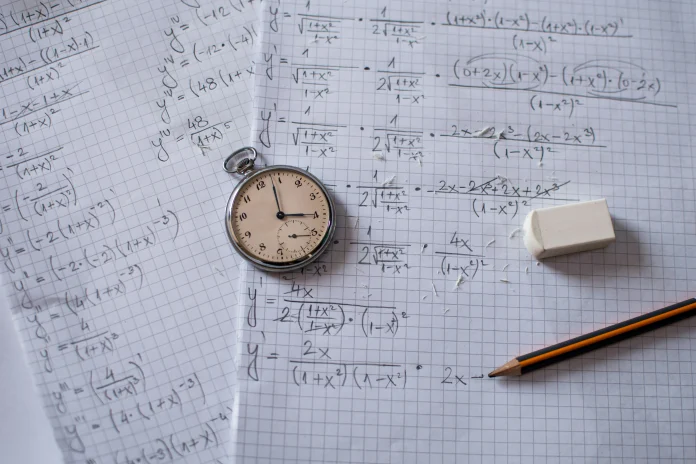 (1+x)²
(1+x)²
1-x-1+x
(1+x)²
-2
(1+x)²
= (-2/(1+x)²)'
y'' = (-2(1+x)⁻²)'
y'' = (-2·(-2)(1+x)⁻³)
y'' = (4(1+x)⁻³)
y'' = 4/(1+x)³
y''' = (4/(1+x)³)'
y''' = (4·(1+x)⁻³)'
4·(-3)(1+x)⁻⁴
= (-12(
= (-12·(-4)
= (48(1+x
= 48/(1+x)⁵
y' = 1/√((1+x²)/(1-x²)) · 1/(2√((1+x²)/(1-x²))) · ((1+x²)'·(1-x²)-(1+x²)·(1-x²)')/(1-x)²
y' = 1/√((1+x²)/(1-x²)) · 1/(2√((1+x²)/(1-x²))) · ((0+2x)(1-x²)-(1+x²)·(0-2x))/(1-x²)²
y' = 1/√((1+x²)/(1-x²)) · 1/(2√((1+x²)/(1-x²))) · (2x-2x³-(2x-2x³))/(1-x²)²
· 1/(2√((1+x²)/(1-x²))) · (2x-2x³+2x+2x³)/(1-x²)²
· 1/(2√((1+x²)/(1-x²))) · 4x/(1-x²)²
y' = 4x/(2·((1+x²)/(1-x²))·(1-x²)²)
y' = 2x/((1+x²)(1-x²)) · 2x
12
1
2
3
4
5
6
7
8
9
10
11